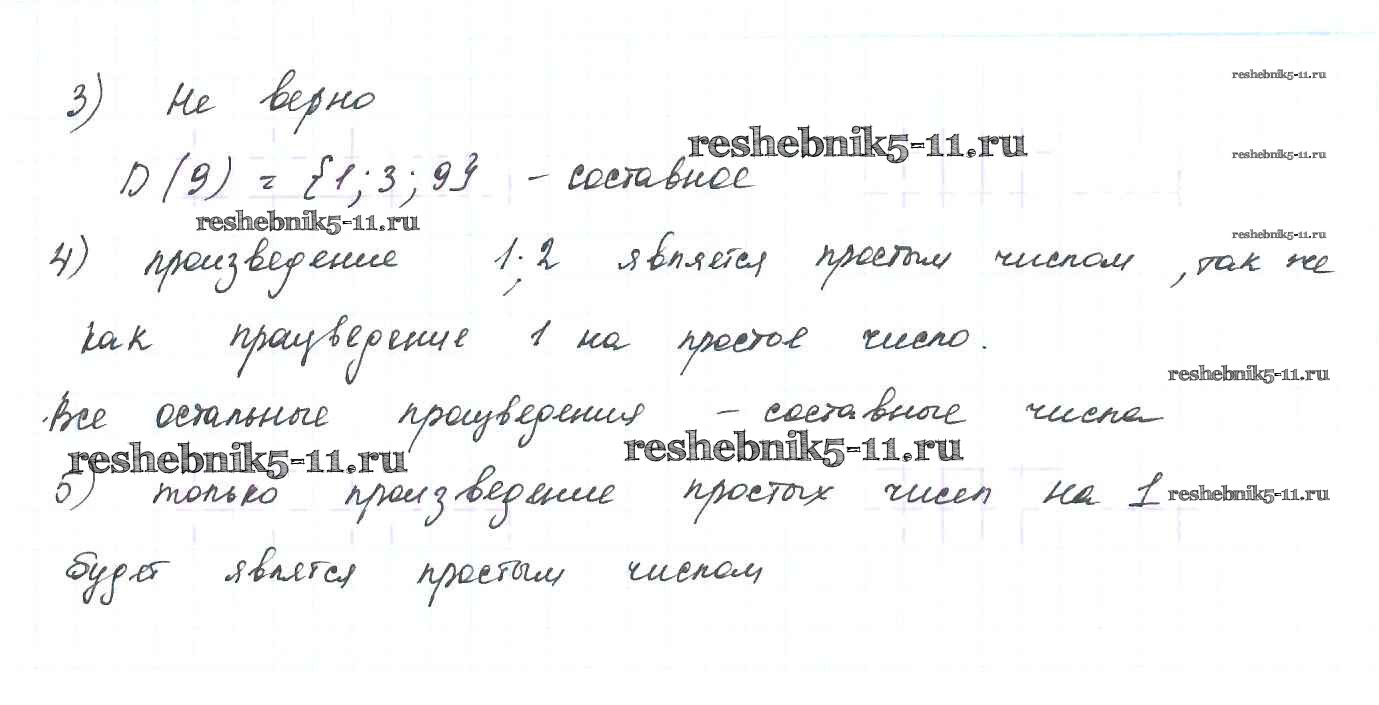 3) Не верно
reshebnik5-11.ru
reshebnik5-11.ru
D(9) = {1; 3; 9} - составное
reshebnik5-11.ru
reshebnik5-11.ru
4) произведение 1·2 является простым числом, так же
reshebnik5-11.ru
как произведение 1 на простое число.
reshebnik5-11.ru
Все остальные произведения - составные числа
reshebnik5-11.ru
reshebnik5-11.ru
5) только произведение простых чисел на 1
reshebnik5-11.ru
будет явлется простым числом